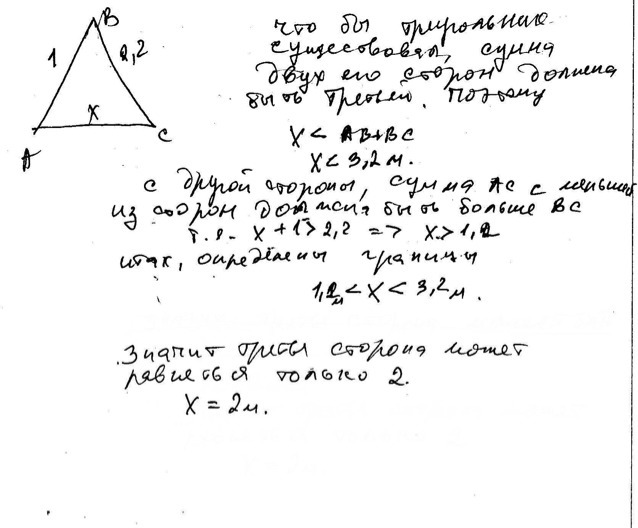 B
1
2,2
X
A
C
что бы треугольник
существовал, сумма
двух его сторон должна
быть третьей. поэтому
X < AB+BC
X < 3,2 м.
с другой стороны, сумма AC с меньшей
из сторон должна быть больше BC
т.е. X + 1 > 2,2 => X > 1,2
итак, определены границы
1,2м < X < 3,2м.
Значит третья сторона может
равняться только 2.
X = 2м.